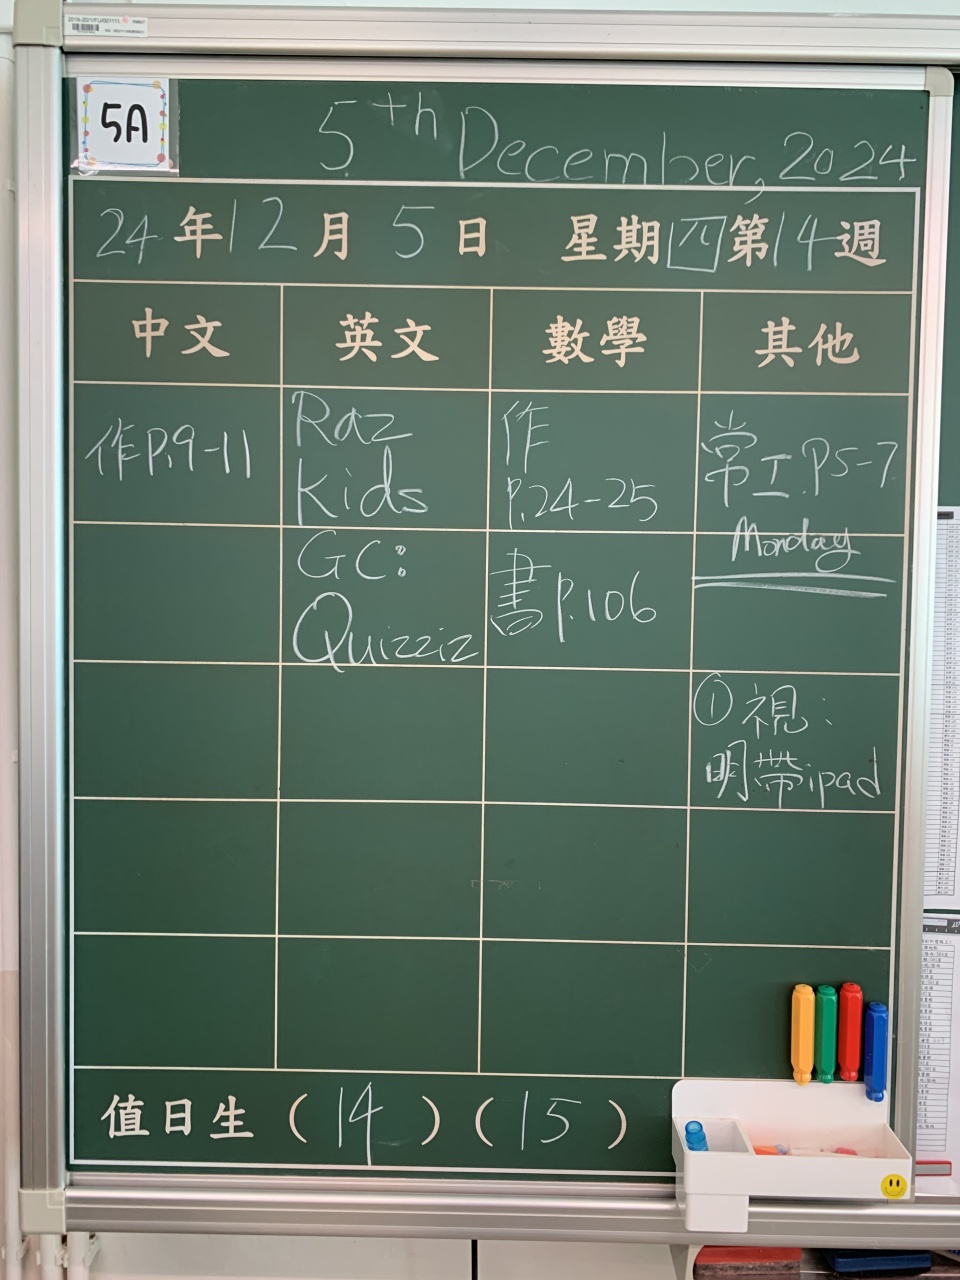 5A
5th December, 2024
24年12月5日 星期四第14週
中文 英文 數學 其他
作P.9-11
Raz
Kids
作
P.24-25
常工.P5-7
Monday
GC:
Quizziz
書P.106
①視:
明帶ipad
值日生(14)(15)